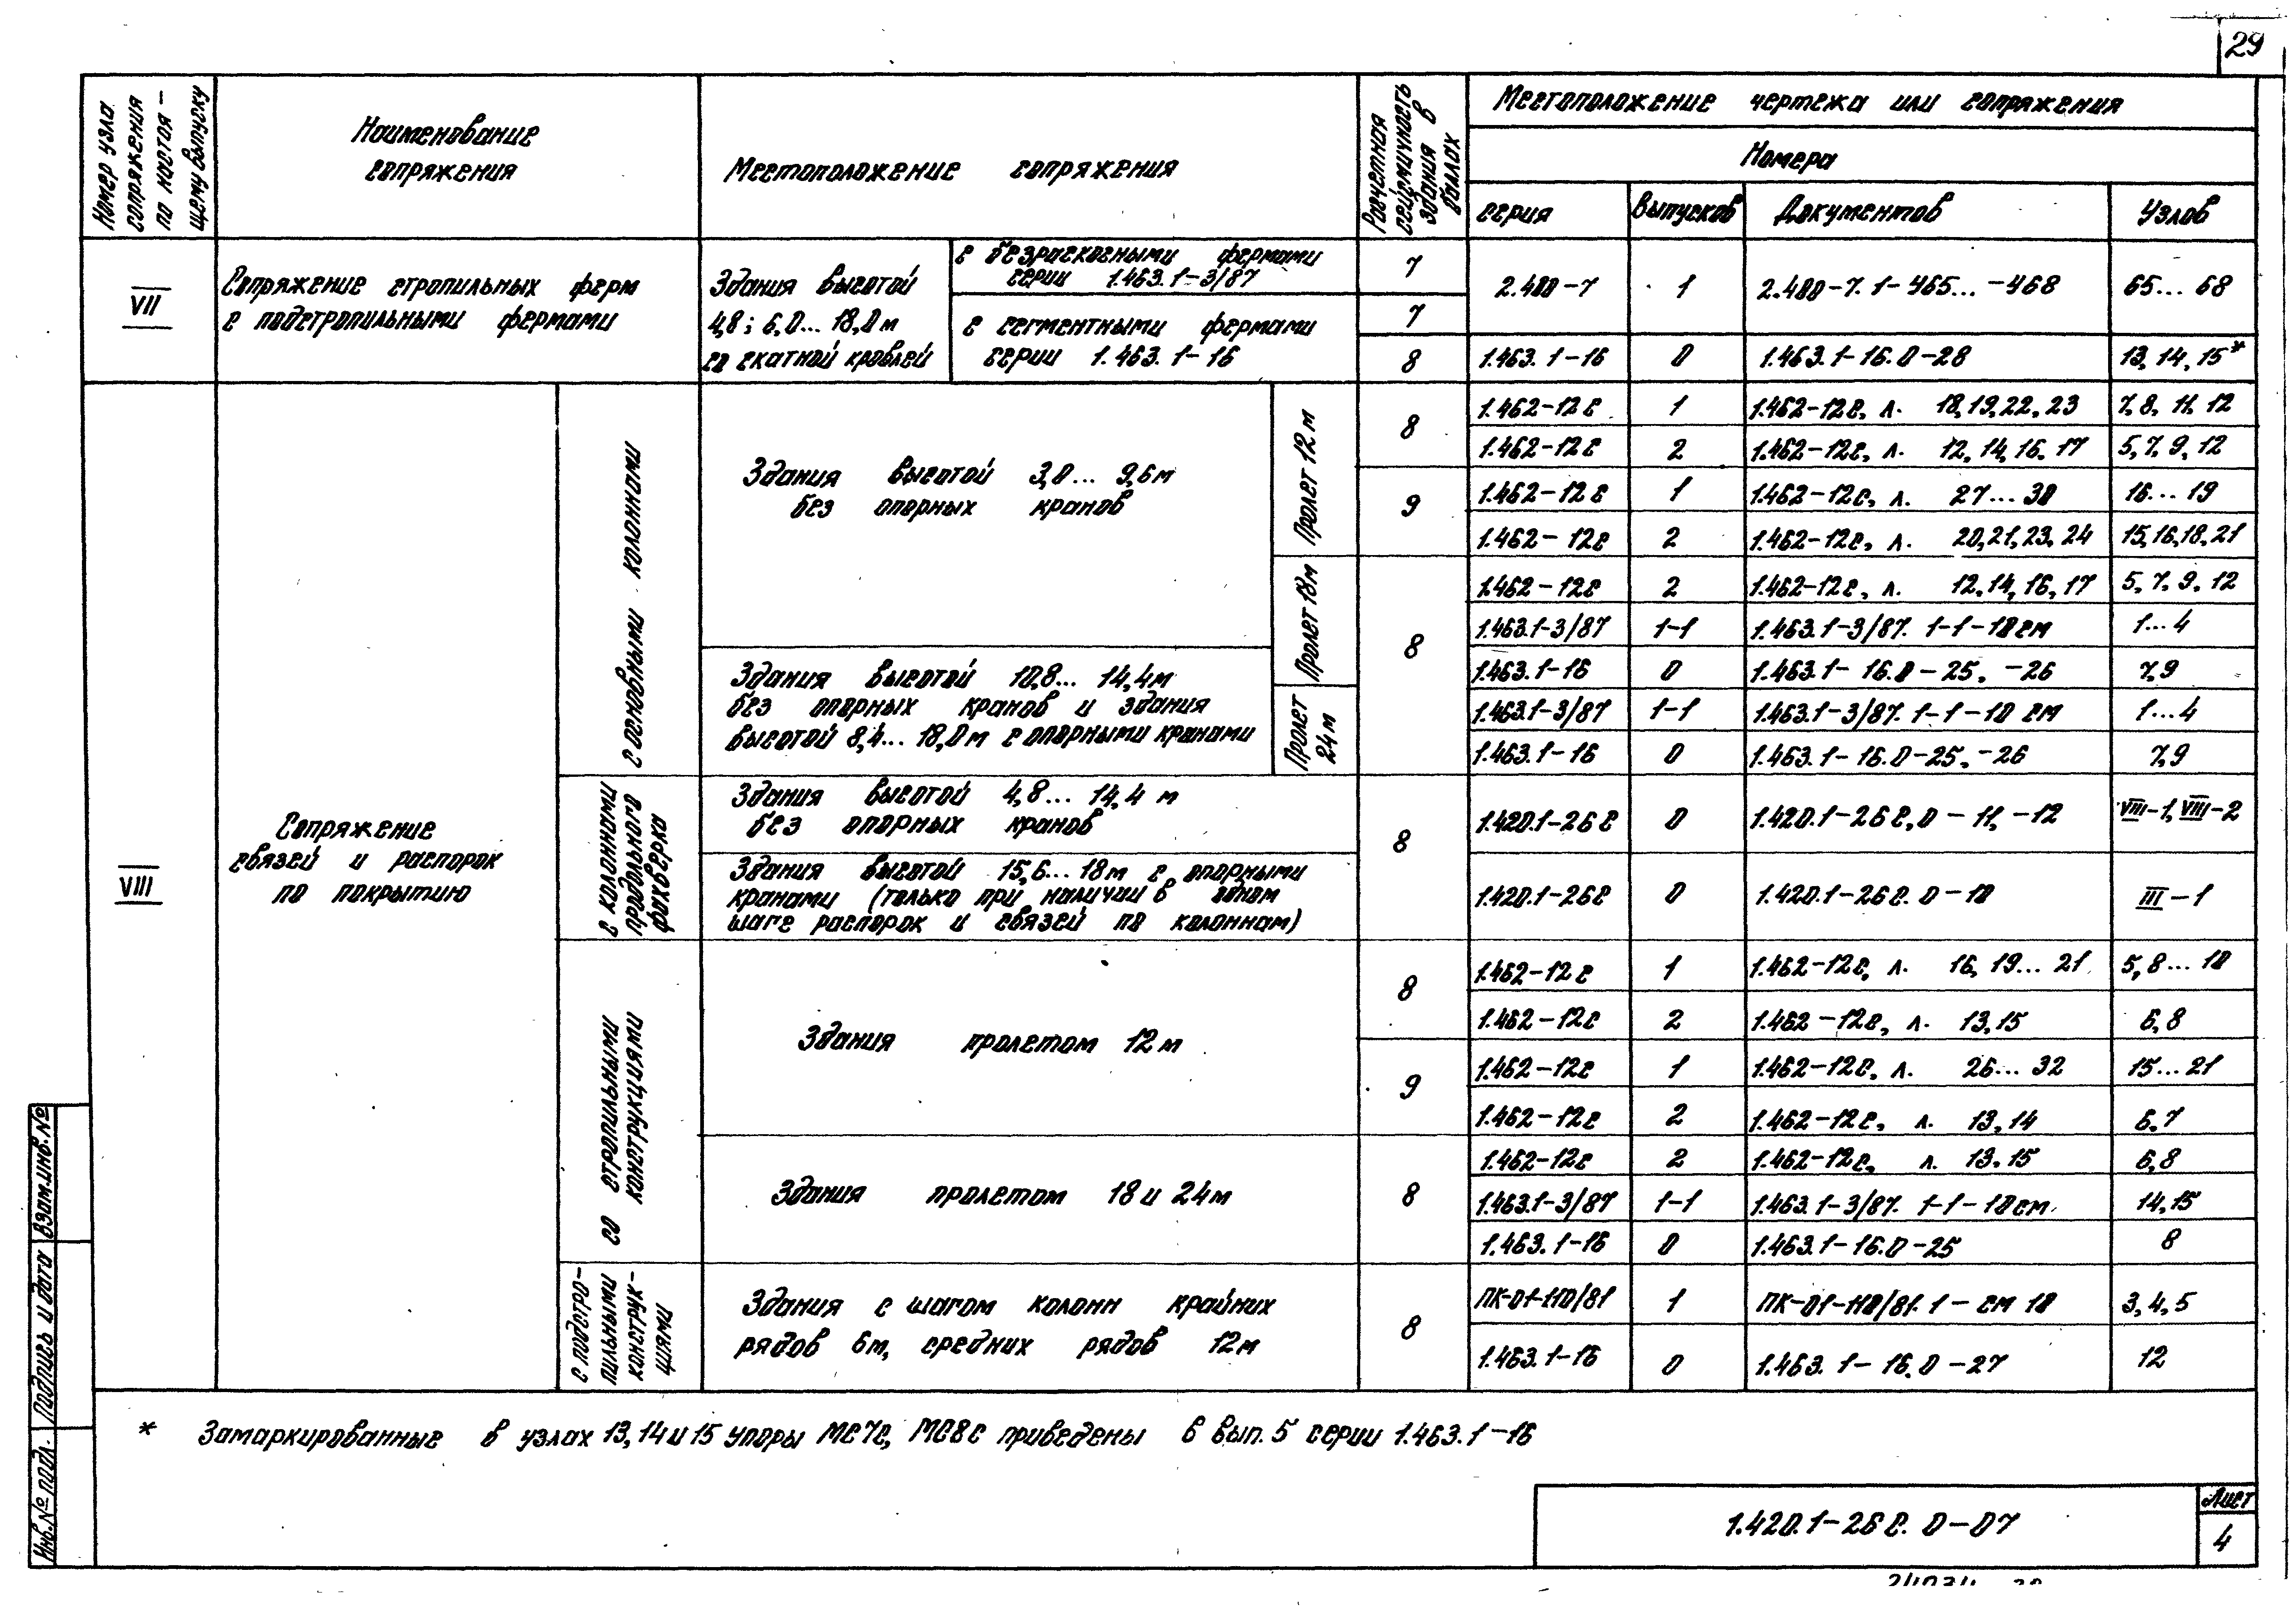 29
Номер узла сопряжения по настоя- щему выпуску
Наименование
сопряжения
Местоположение сопряжения
Расчетная сейсмичность здания в баллах
Местоположение чертежа или сопряжения
Номера
серия
выпусков
Документов
Узлов
VII
Сопряжение стропильных ферм
с подстропильными фермами
Здания высотой
4,8; 6,0... 18,0м
со скатной кровлей
с безраскосными фермами
серии 1.463.1-3/87
7
2.400-7
1
2.400-7.1-465...-468
65... 68
с сегментными фермами
серии 1.463.1-16
7
8
1.463.1-16
0
1.463.1-16.0-28
13, 14, 15*
VIII
Сопряжение
связей и распорок
по покрытию
с основными колоннами
Здания высотой 3,0... 9,6м
без опорных кранов
Пролет 12м
8
1.462-12с
1
1.462-12с, л. 18,19,22,23
7, 8, 11, 12
1.462-12с
2
1.462-12с, л. 12,14,16,17
5, 7, 9, 12
9
1.462-12с
1
1.462-12с, л. 27...30
16...19
1.462-12с
2
1.462-12с, л. 20,21,23,24
15,16,18,21
Пролет 18м
8
1.462-12с
2
1.462-12с, л. 12,14,16,17
5, 7, 9, 12
1.463.1-3/87
1-1
1.463.1-3/87. 1-1-10см
1...4
Здания высотой 10,8... 14,4м
без опорных кранов и здания
высотой 8,4... 18,0м с опорными кранами
1.463.1-16
0
1.463.1-16.0-25, -26
7,9
Пролет 24м
1.463.1-3/87
1-1
1.463.1-3/87. 1-1-10 см
1...4
1.463.1-16
0
1.463.1-16.0-25, -26
7,9
с колоннами продольного фахверка
Здания высотой 4,8... 14,4 м
без опорных кранов
8
1.420.1-26с
0
1.420.1-26с.0-11, -12
VIII-1, VIII-2
Здания высотой 15,6... 18м с опорными
кранами (только при наличии в одном
шаге распорок и связей по колоннам)
1.420.1-26с
0
1.420.1-26с. 0-10
III-1
со стропильными конструкциями
Здания пролетом 12м
8
1.462-12с
1
1.462-12с, л. 16, 19...21
5, 8...10
1.462-12с
2
1.462-12с, л. 13,15
6, 8
9
1.462-12с
1
1.462-12с, л. 26...32
15...21
1.462-12с
2
1.462-12с, л. 13,14
6,7
Здания пролетом 18 и 24м
8
1.462-12с
2
1.462-12с, л. 13,15
6,8
1.463.1-3/87
1-1
1.463.1-3/87. 1-1-10см
14,15
1.463.1-16
0
1.463.1-16.0-25
8
с подстро- пильными конструк- циями
Здания с шагом колонн крайних
рядов 6м, средних рядов 12м
8
ПК-01-110/81
1
ПК-01-110/81.1-см 10
3, 4, 5
1.463.1-16
0
1.463.1-16.0-27
12
* Замаркированные в узлах 13,14 и 15 упоры МС7с, МС8с приведены в вып. 5 серии 1.463.1-16
Инв.№ подл.
Подпись и дата
Взам.инв.№
1.420.1-26с. 0-07
Лист
4